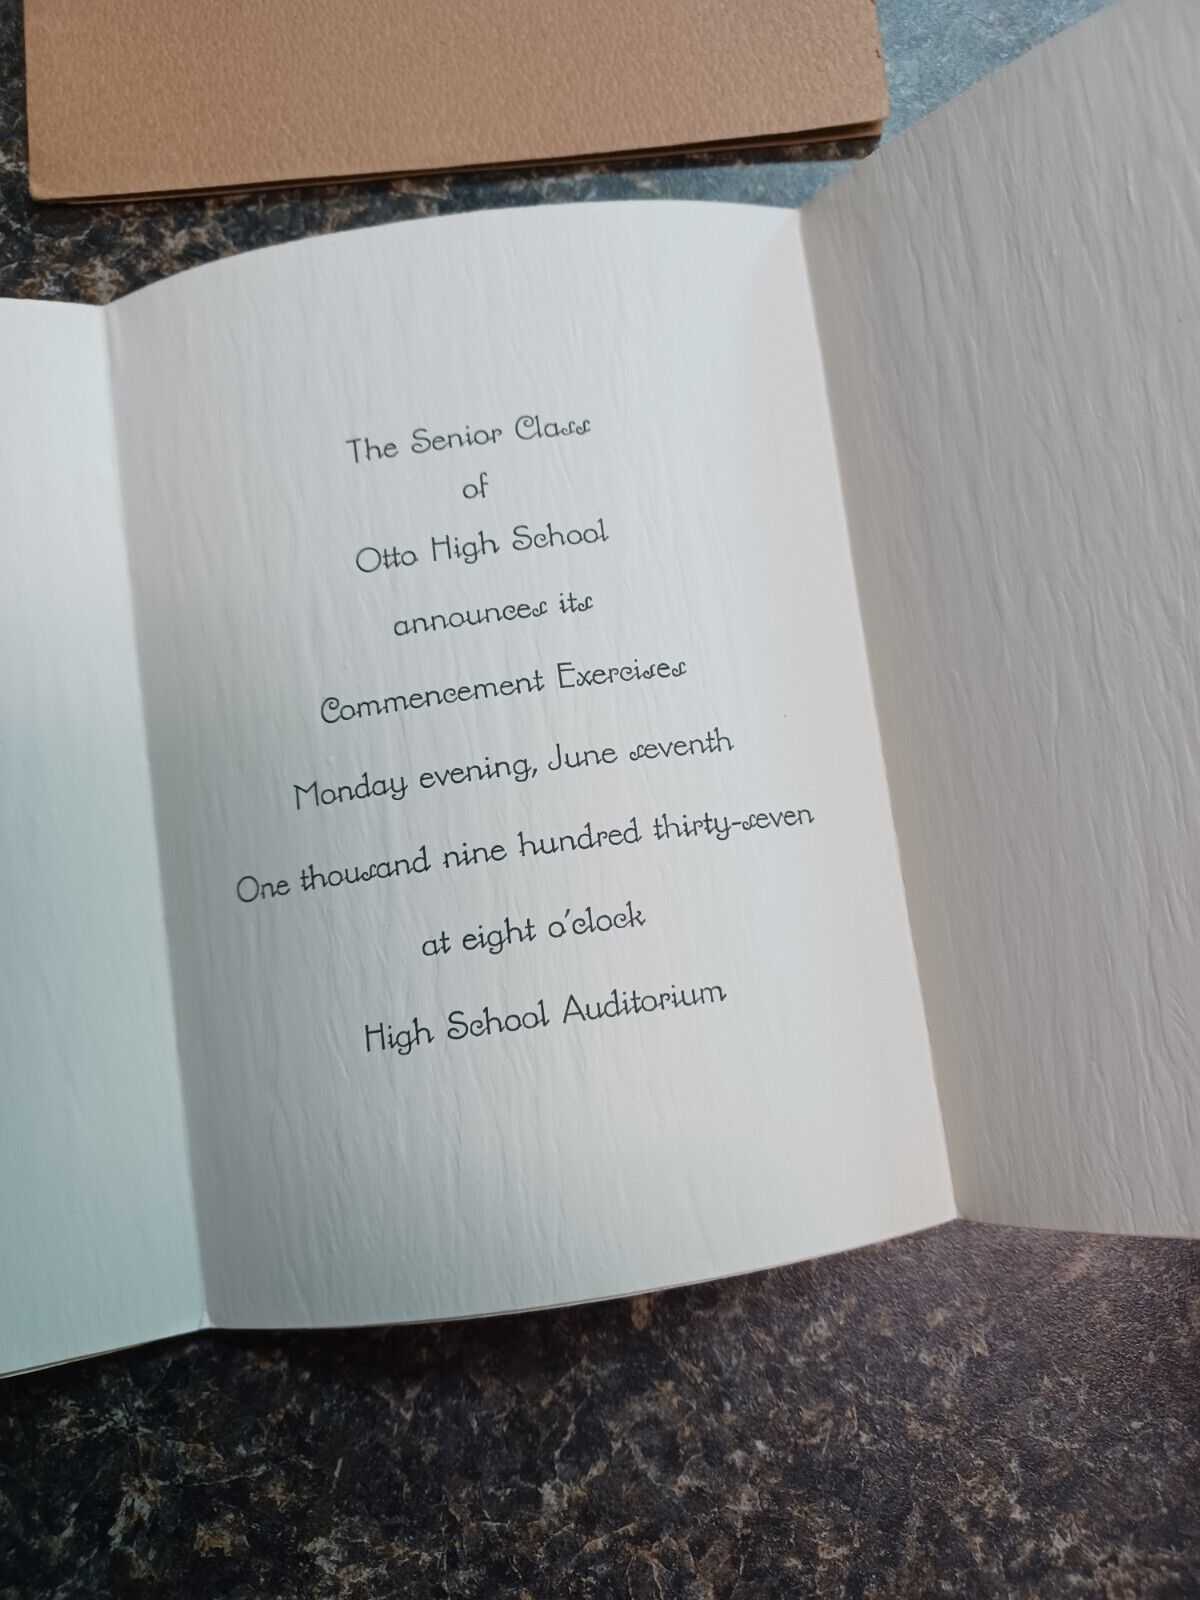 The Senior Class
of
Otto High School
announces its
Commencement Exercises
Monday evening, June seventh
One thousand nine hundred thirty-seven
at eight o'clock
High School Auditorium